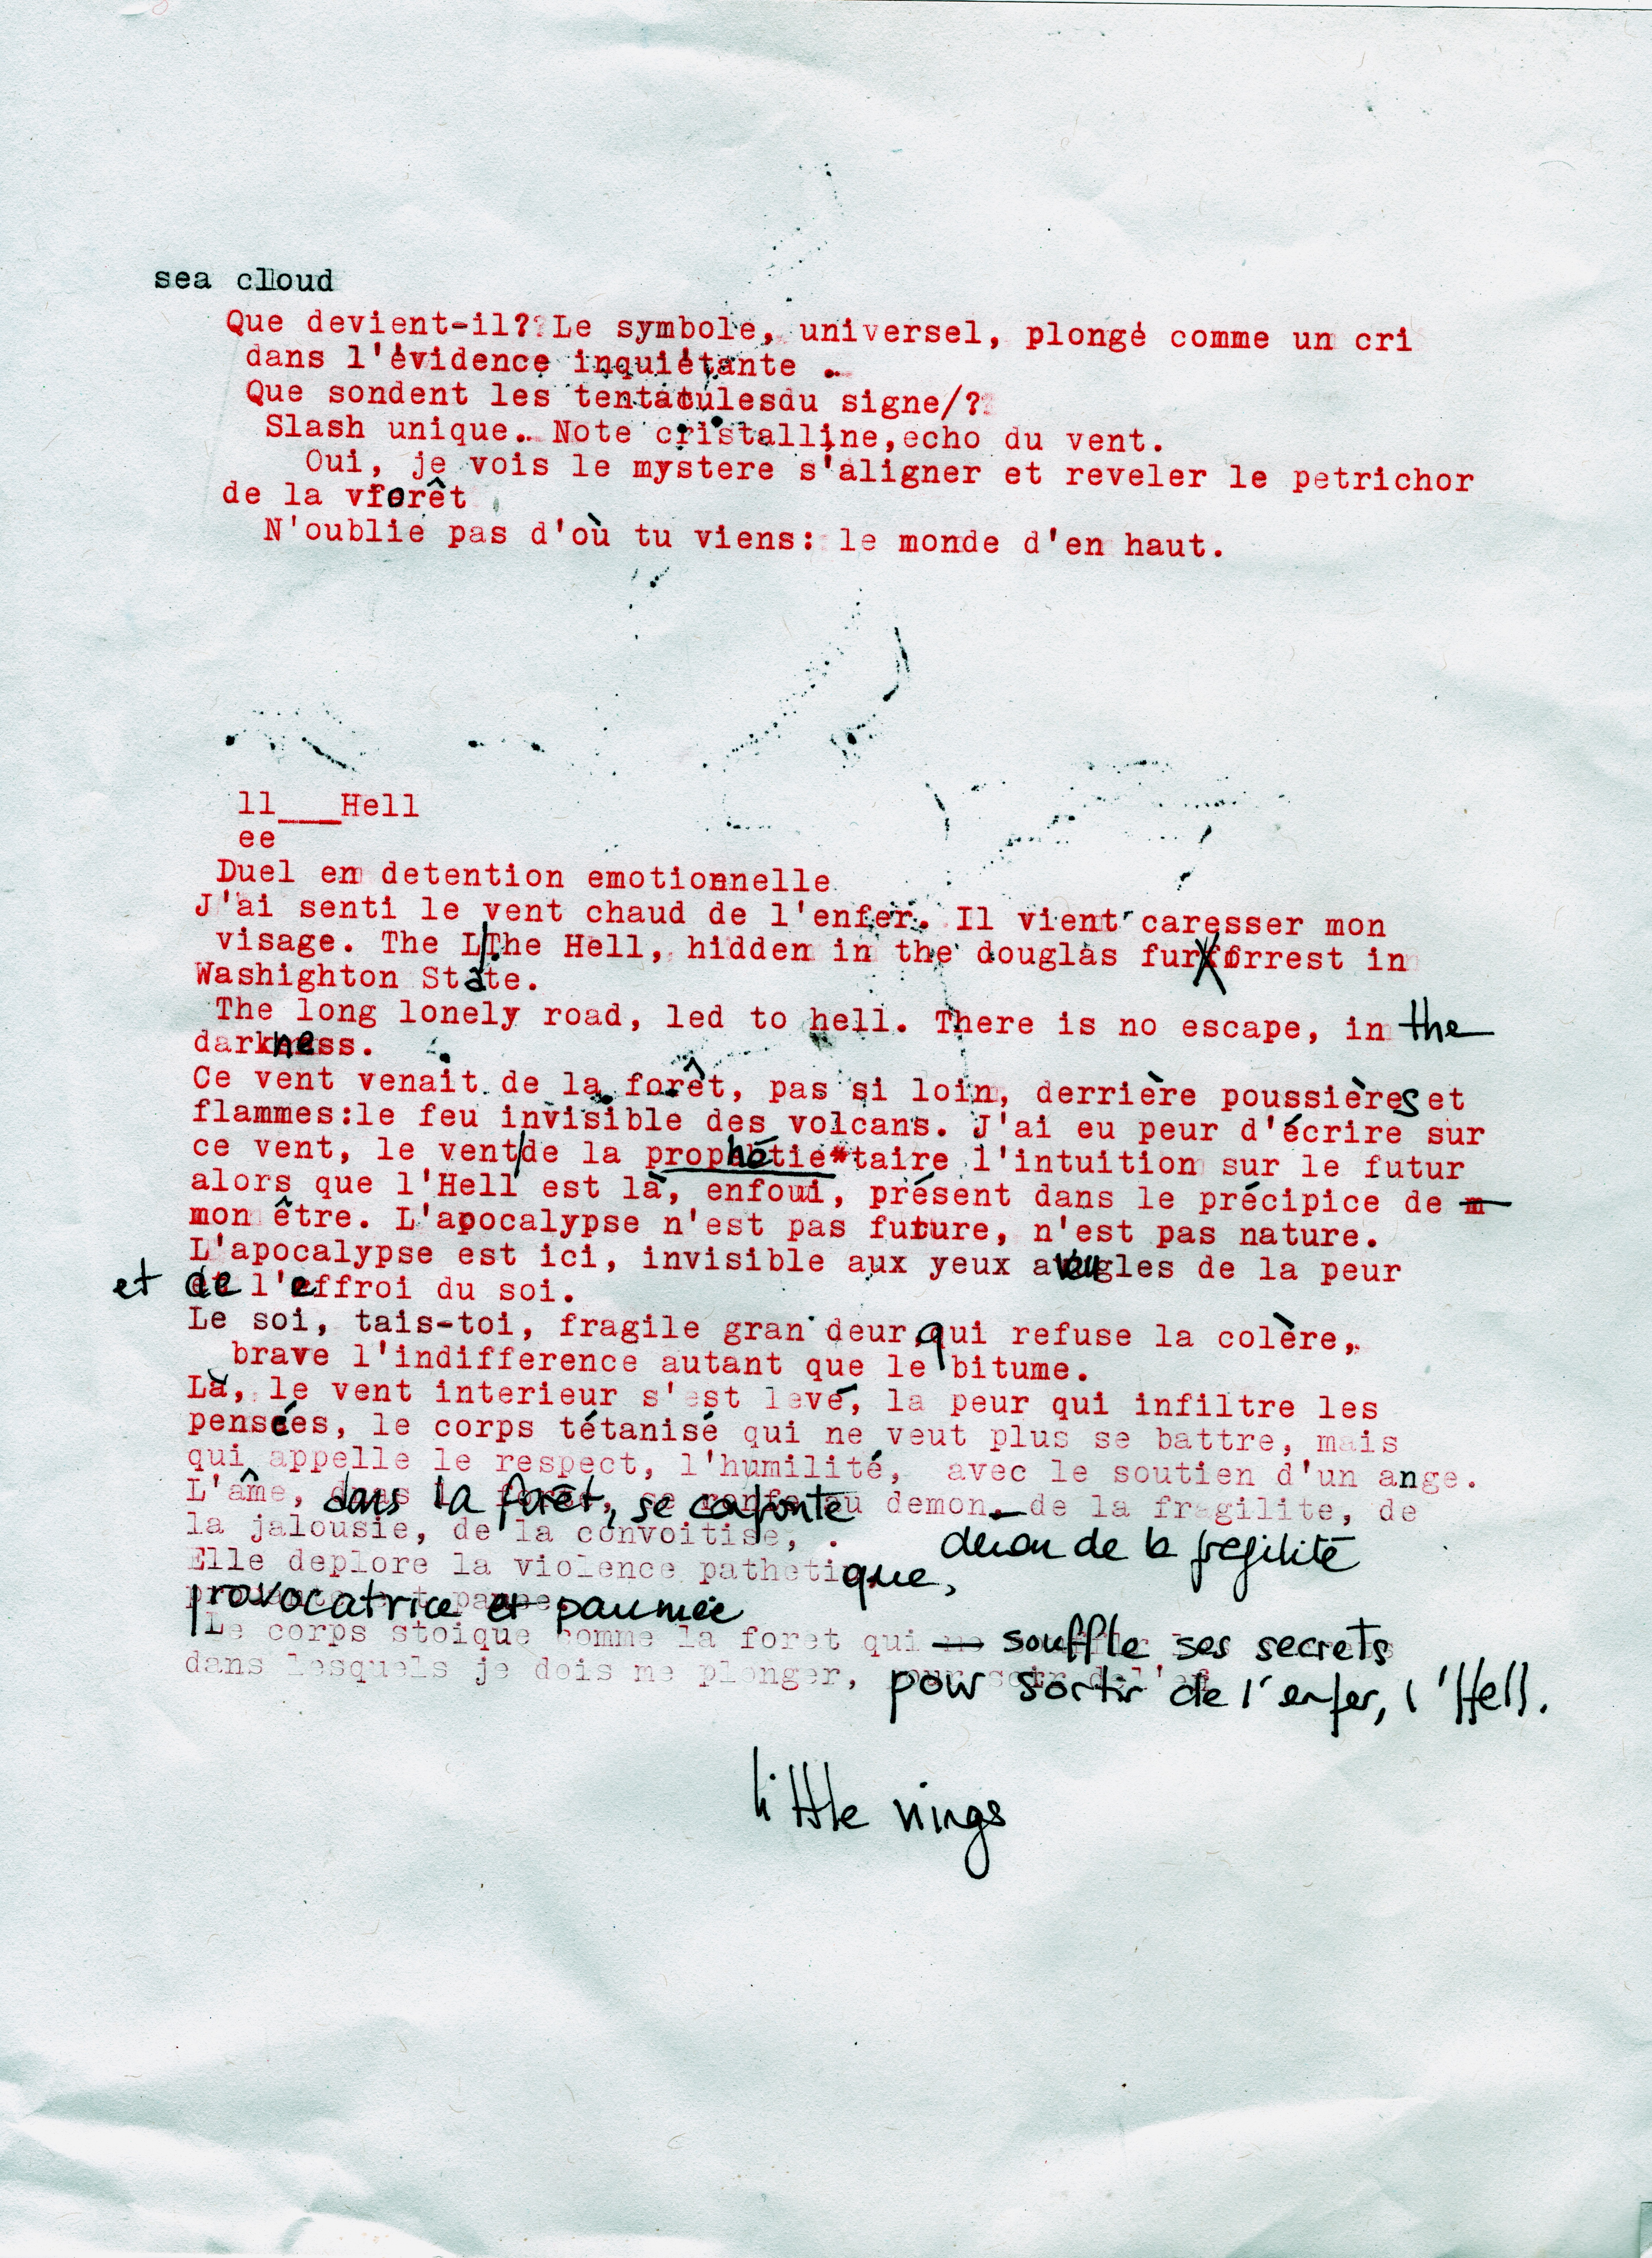 sea cloud
Que devient-il? Le symbole, universel, plongé comme un cri
dans l'évidence inquiétante .
Que sondent les tentatulesdu signe/?
Slash unique. Note cristalline,echo du vent.
Oui, je vois le mystere s'aligner et reveler le petrichor
de la vforêt
N'oublie pas d'où tu viens: le monde d'en haut.
ll___Hell
ee
Duel en detention emotionnelle
J'ai senti le vent chaud de l'enfer. Il vient caresser mon
visage. The L The Hell, hidden in the douglas fur forrest in
Washighton State.
The long lonely road, led to hell. There is no escape, in the
darkness.
Ce vent venait de la forêt, pas si loin, derrière poussières et
flammes:le feu invisible des volcans. J'ai eu peur d'écrire sur
ce vent, le vent/de la prophétie*taire l'intuition sur le futur
alors que l'Hell est là, enfoui, présent dans le précipice de m
mon être. L'apocalypse n'est pas future, n'est pas nature.
L'apocalypse est ici, invisible aux yeux aveugles de la peur
et de l'effroi du soi.
Le soi, tais-toi, fragile gran deur,qui refuse la colère,
brave l'indifference autant que le bitume.
Là, le vent interieur s'est levé, la peur qui infiltre les
pensées, le corps tétanisé qui ne veut plus se battre, mais
qui appelle le respect, l'humilité, avec le soutien d'un ange.
L'âme, dans la forêt, se confonte au demon. de la fragilite, de
la jalousie, de la convoitise, .
démon de la fragilité
Elle deplore la violence pathetique,
provocatrice et paumée
Le corps stoique comme la foret qui souffle ses secrets
dans lesquels je dois me plonger, pour sortir de l'enfer, l'Hell.
little nings